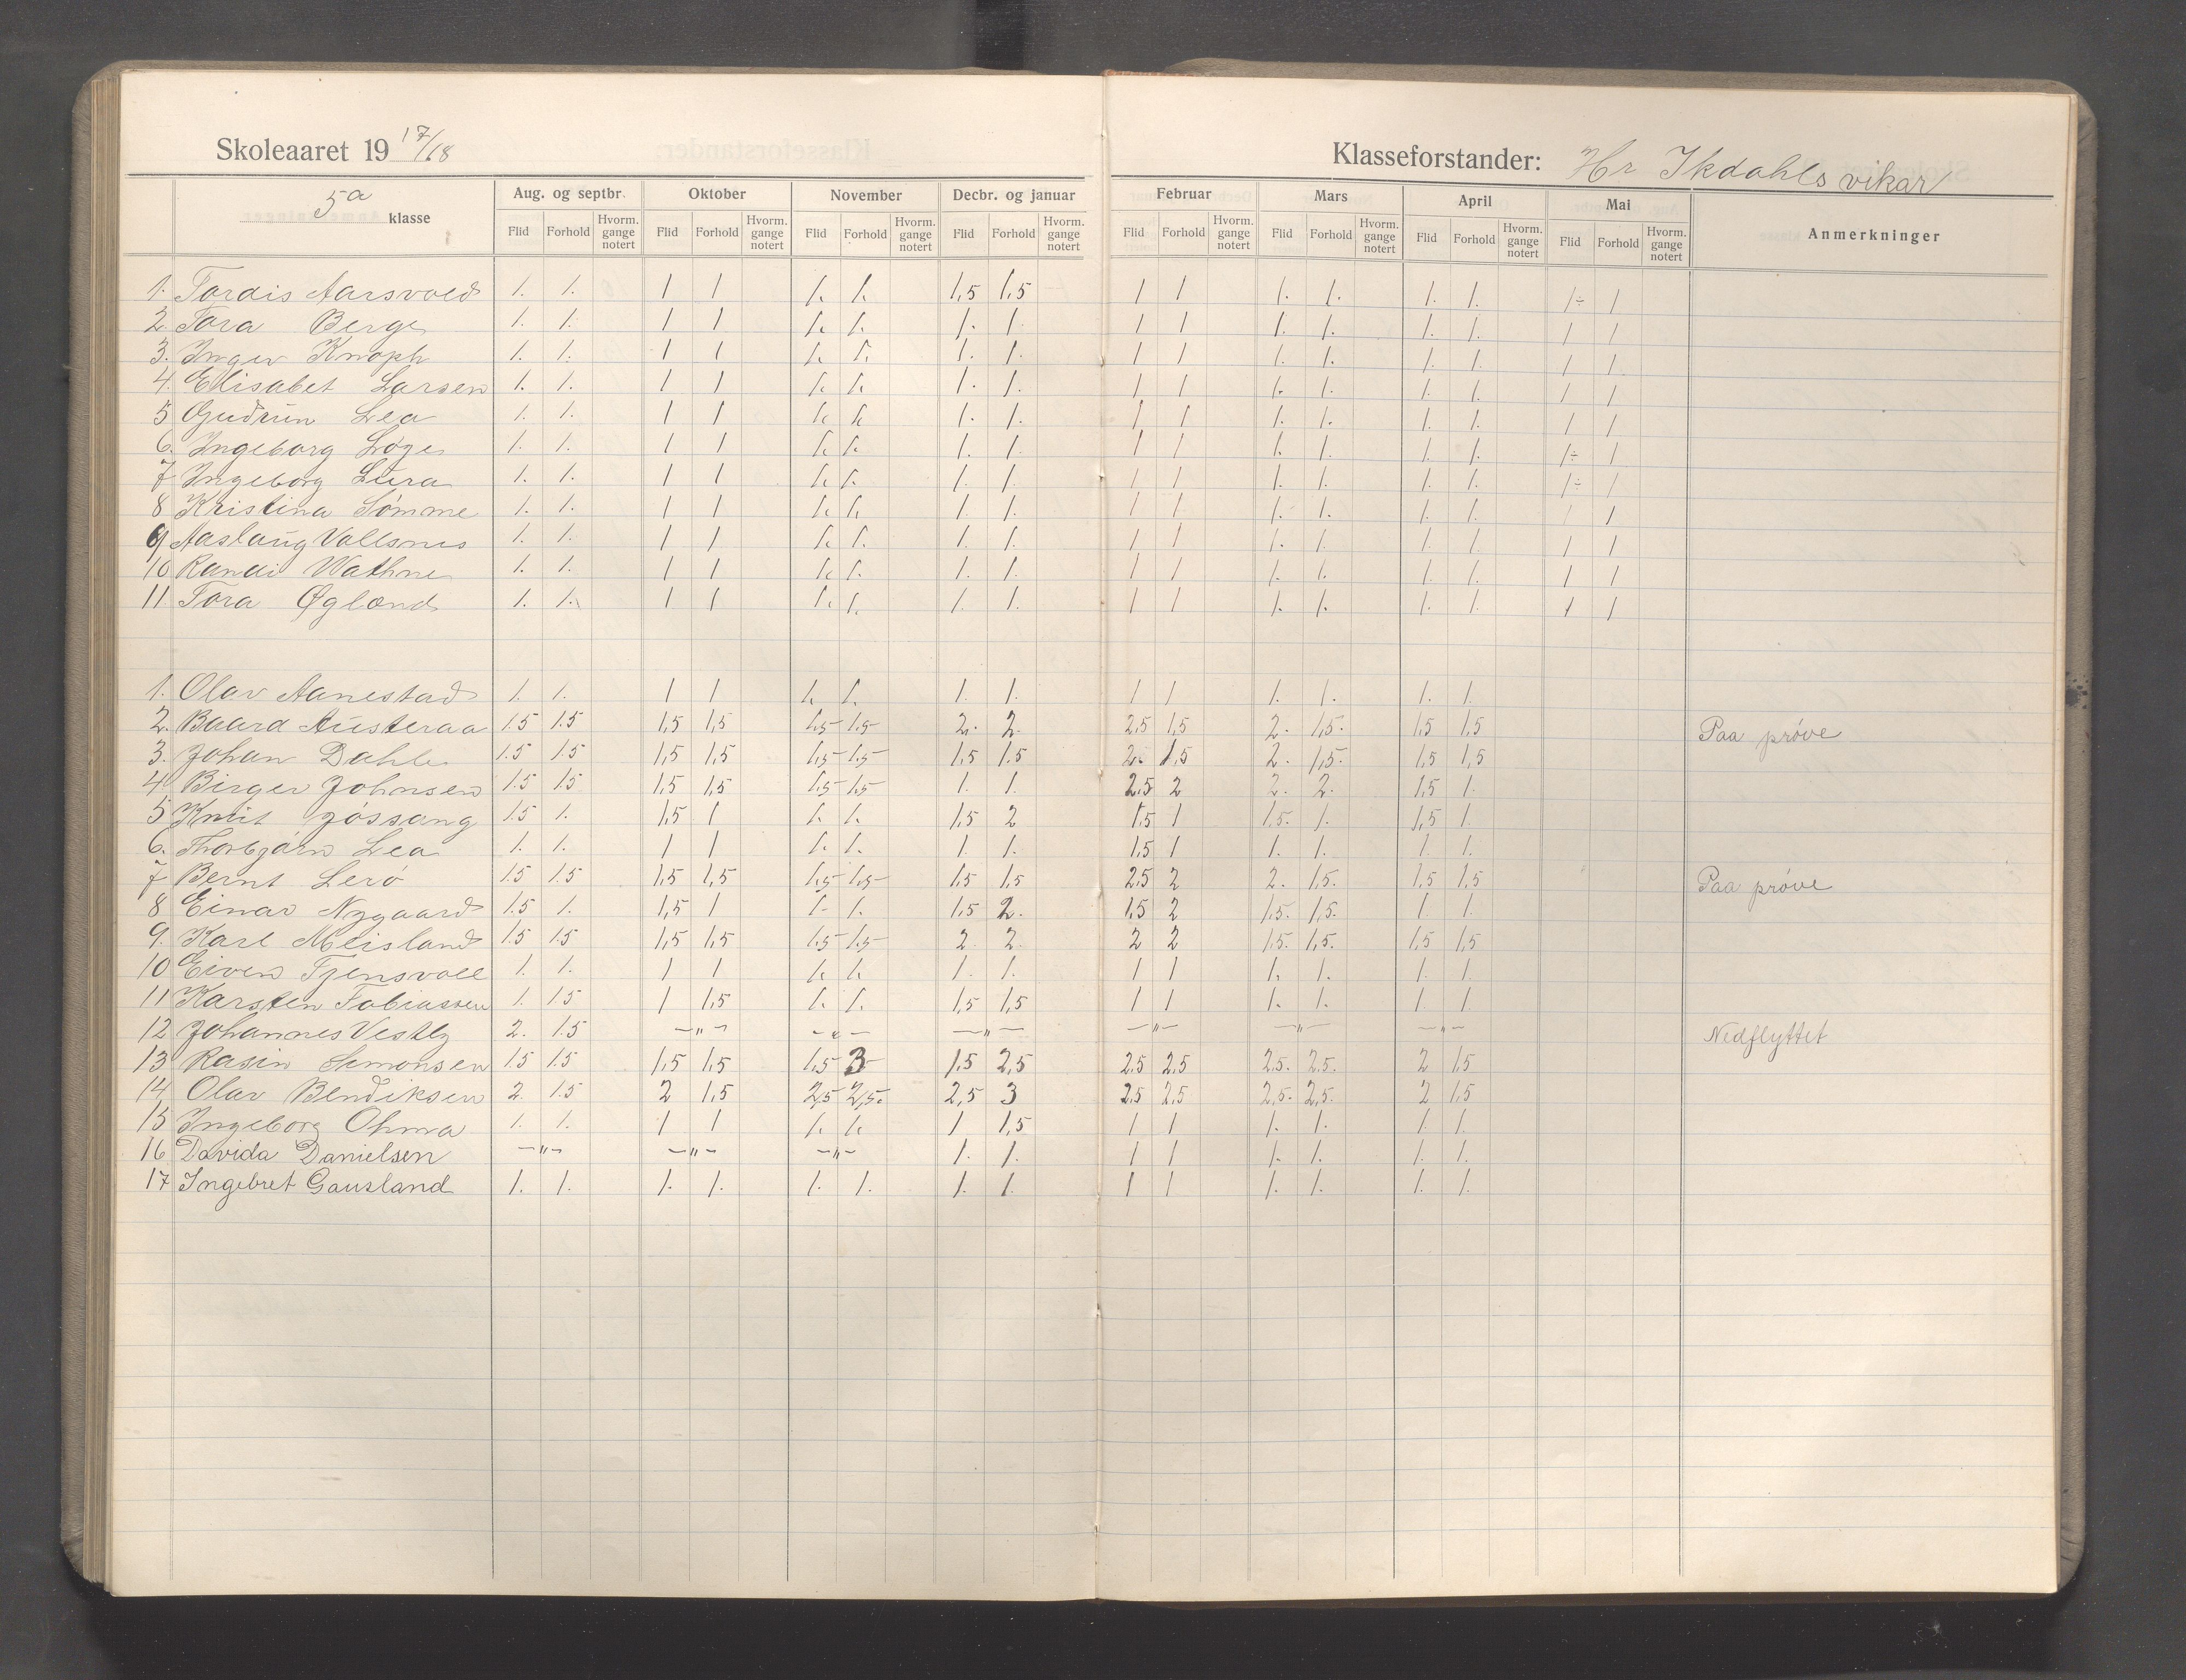 Skoleaaret 19 17/18
Klasseforstander: Hr Ikdahls vikar
5a klasse
Aug. og septbr. Oktober November Decbr. og januar Februar Mars April Mai
Flid Forhold Hvorm. gange notert Flid Forhold Hvorm. gange notert Flid Forhold Hvorm. gange notert Flid Forhold Hvorm. gange notert Flid Forhold Hvorm. gange notert Flid Forhold Hvorm. gange notert Flid Forhold Hvorm. gange notert Flid Forhold Hvorm. gange notert Anmerkninger
1. Tordis Aarsvold 1. 1. 1 1 1. 1. 1,5 1,5 1 1 1. 1. 1. 1. 1÷ 1
2. Tora Berge 1. 1. 1 1 1. 1. 1. 1. 1 1 1. 1. 1. 1. 1 1
3. Inger Knoph 1. 1. 1 1 1. 1. 1. 1. 1 1 1. 1. 1. 1. 1 1
4. Elisabet Larsen 1. 1. 1 1 1. 1. 1. 1. 1 1 1. 1. 1. 1. 1 1
5 Gudrun Lea 1. 1. 1 1 1. 1. 1. 1. 1 1 1. 1. 1. 1. 1 1
6. Ingeborg Løge 1. 1. 1 1 1. 1. 1. 1. 1 1 1. 1. 1. 1. 1÷ 1
7 Ingeborg Lura 1. 1. 1 1 1. 1. 1. 1. 1 1 1. 1. 1. 1. 1÷ 1
8 Kristina Sømme 1. 1. 1 1 1. 1. 1. 1. 1 1 1. 1. 1. 1. 1 1
9 Aaslaug Vallsnes 1. 1. 1 1 1. 1. 1. 1. 1 1 1. 1. 1. 1. 1 1
10 Randi Wathne 1. 1. 1 1 1. 1. 1. 1. 1 1 1. 1. 1. 1. 1 1
11 Tora Øglænd 1. 1. 1 1 1. 1. 1. 1. 1 1 1. 1. 1. 1. 1 1
1. Olav Aanestad 1. 1. 1 1 1. 1. 1. 1. 1 1 1. 1. 1. 1.
2. Baard Austeraa 1.5 1.5 1,5 1,5 1,5 1,5 2. 2. 2,5 1,5 2. 1,5. 1,5 1,5 Paa prøve
3. Johan Dahle 1.5 1.5 1,5 1,5 1,5 1,5 1,5 1.5 2. 1,5 2. 1,5. 1,5 1,5
4 Birger Johnsen 1.5 1.5 1,5 1,5 1,5 1,5 1. 1. 2,5 2 2. 2. 1,5 1.
5 Knut Jøssang 1.5 1. 1,5 1 1. 1. 1,5 2 1,5 1 1,5. 1. 1,5 1.
6. Thorbjørn Lea 1. 1. 1 1 1. 1. 1. 1. 1,5 1 1. 1. 1. 1.
7 Bernt Lerø 1.5 1.5 1,5 1,5 1,5 1,5 1,5 1,5 2,5 2 2. 1,5. 1,5 1,5 Paa prøve
8 Einar Nygaard 1.5 1. 1,5 1 1. 1. 1,5 2. 1,5 2 1,5. 1,5. 1. 1.
9. Karl Meisland 1.5 1.5 1,5 1,5 1,5 1,5 2. 2. 2 2 1,5. 1,5. 1,5 1,5
10 Eiven Tjensvoll 1. 1. 1 1 1. 1. 1. 1. 1 1 1. 1. 1. 1.
11 Karsten Tobiassen 1. 1.5 1 1,5 1. 1. 1,5 1,5 1 1 1. 1. 1. 1.
12 Johannes Vestly 2. 1.5 —"— —"— —"— —"— —"— —"— Nedflyttet
13 Rasin Simonsen 1.5 1.5 1,5 1,5 1,5 3 1,5 2,5 2,5 2,5 2,5. 2,5. 2 1,5
14 Olav Bendiksen 2. 1.5 2 1,5 2,5 2,5. 2,5 3 2,5 2,5 2,5. 2,5. 2 1,5
15 Ingeborg Ohma 1. 1. 1 1 1. 1. 1 1,5 1 1 1. 1. 1. 1.
16 Davida Danielsen —"— —"— —"— 1. 1. 1 1 1. 1. 1. 1.
17 Ingebret Gausland 1. 1. 1. 1. 1. 1. 1. 1. 1 1 1. 1. 1. 1.